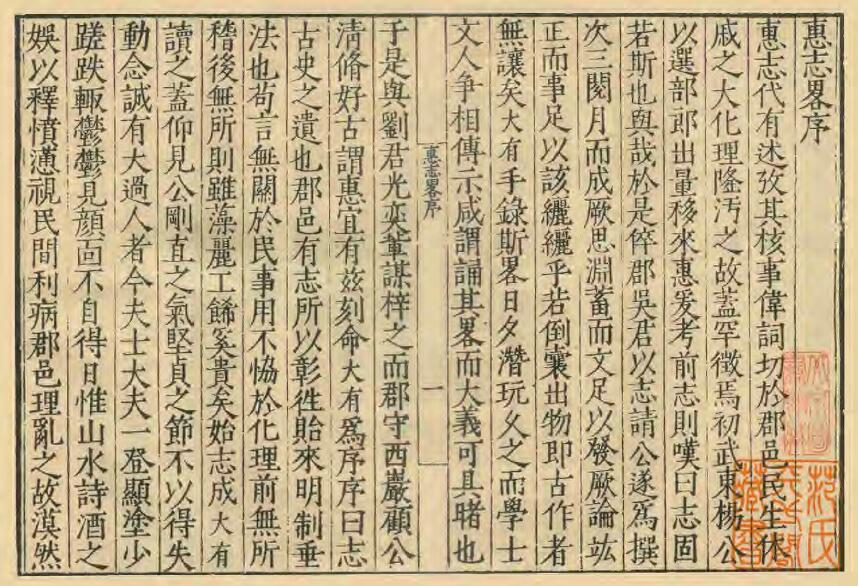 惠志畧序
惠志代有述攷其核事偉詞切於郡邑民生休
戚之大化理隆汚之故蓋罕徵焉初武東楊公
以選部郎出量移來惠爰考前志則嘆曰志固
若斯也與哉於是倅郡吳君以志請公遂爲撰
次三閱月而成厥思淵蓄而文足以發厥論竑
正而事足以該纚纚乎若倒囊出物即古作者
無讓矣大有手錄斯畧日夕潛玩乆之而學士
文人爭相傳示咸謂誦其畧而大義可具睹也
惠志畧序
一
于是與劉君光奕軰謀梓之而郡守西巖顧公
淸脩好古謂惠宜有兹刻命大有爲序序曰志
古史之遺也郡邑有志所以彰徃貽來明制埀
法也茍言無關於民事用不恊於化理前無所
稽後無所則雖藻麗工餙奚貴矣始志成大有
讀之蓋仰見公剛直之氣堅貞之節不以得失
動念誠有大過人者今夫士大夫一登顯塗少
蹉跌輙鬱鬱見顏靣不自得日惟山水詩酒之
娛以釋憤懣視民間利病郡邑理亂之故漠然
范氏天一閣藏書